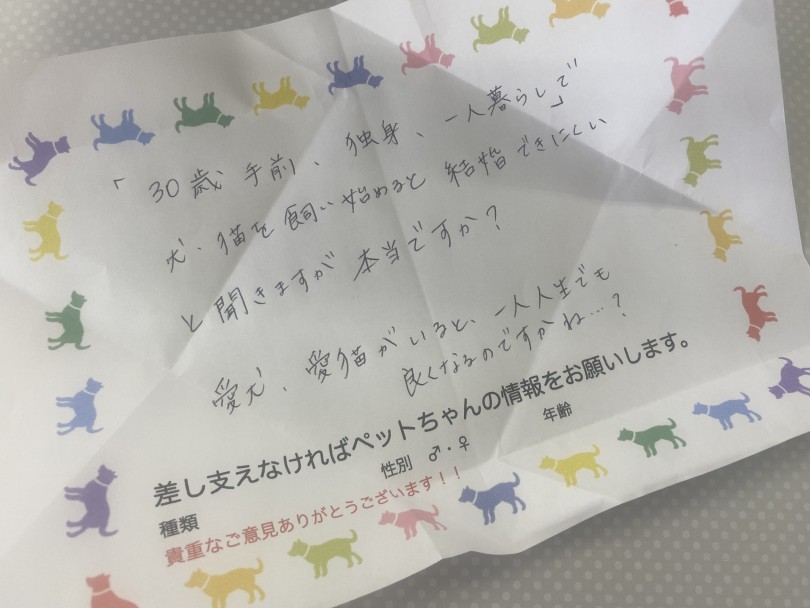 「30歳手前、独身、一人暮らしで
犬、猫を飼い始めると結婚できにくい」
と聞きますが本当ですか?
愛犬、愛猫がいると、一人人生でも
良くなるのですかね…?
差し支えなければペットちゃんの情報をお願いします。
種類 性別 ♂・♀ 年齢
貴重なご意見ありがとうございます!!